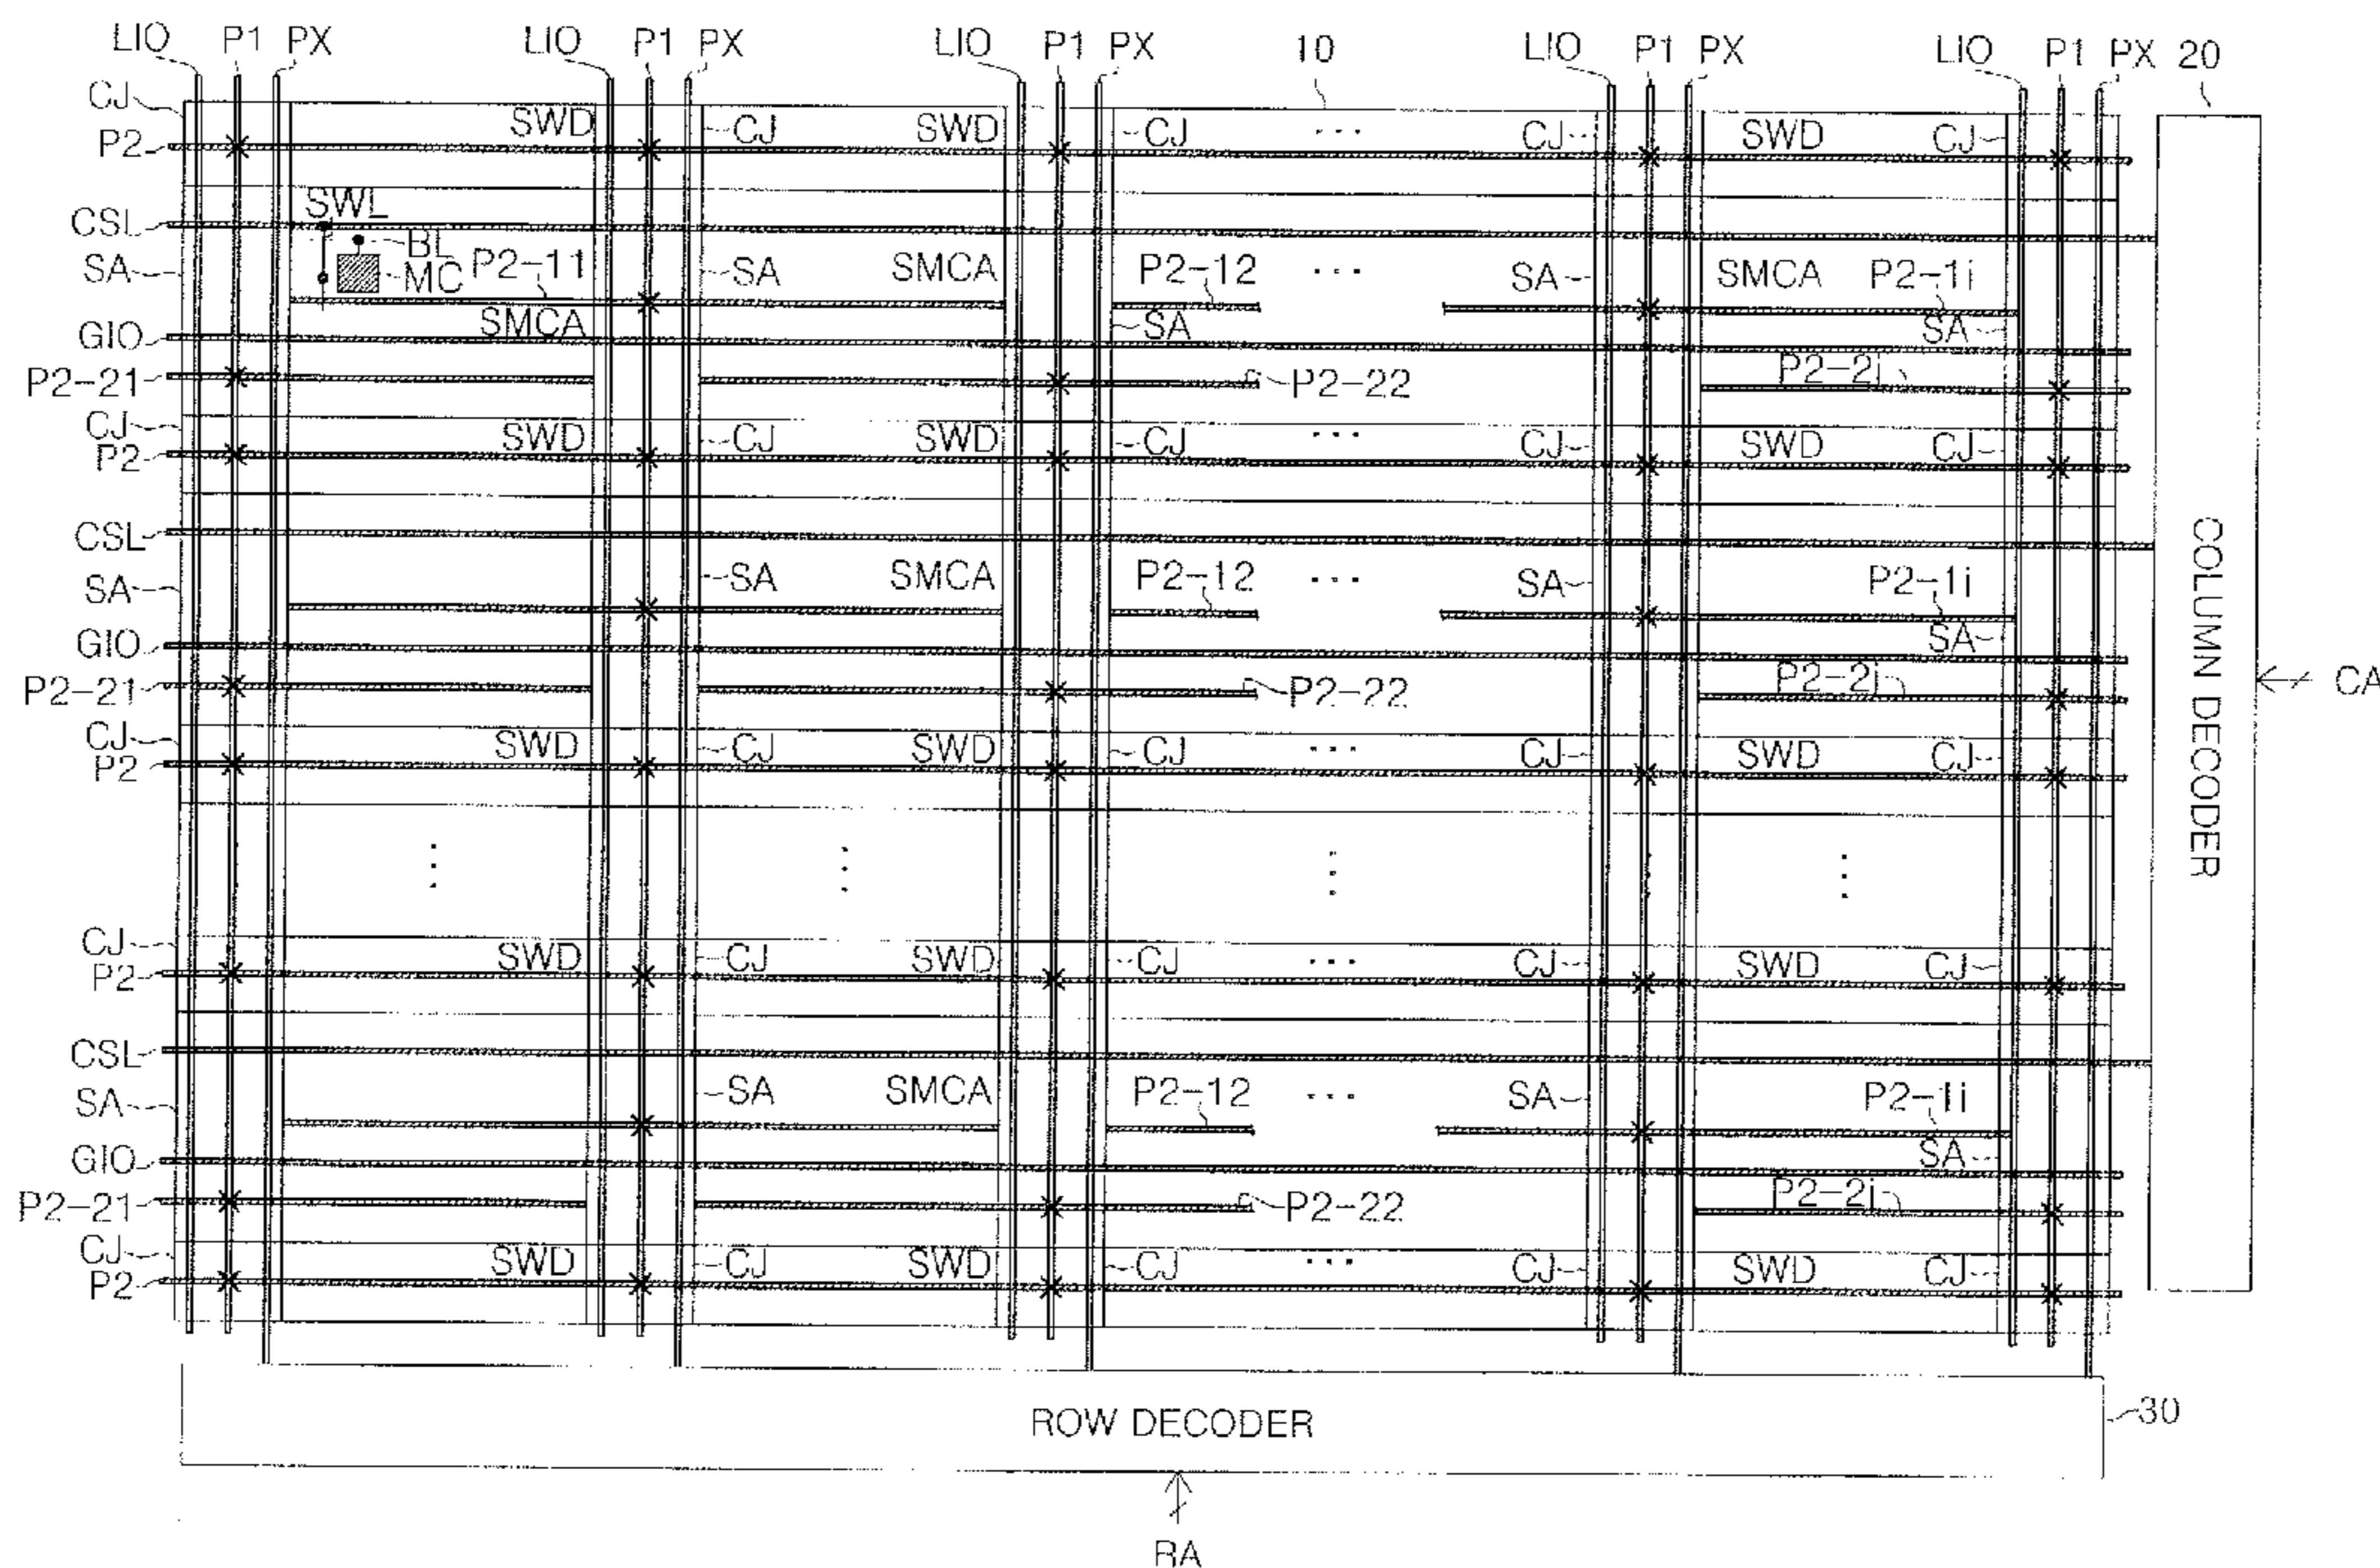 LIO P1 PX LIO P1 PX LIO P1 PX 10 LIO P1 PX LIO P1 PX 20
CJ SWD CJ SWD CJ ... CJ SWD CJ
P2
SWL
CSL
BL
SA MC P2-11 SA SMCA P2-12 ... SA SMCA P2-1i
SMCA SA SA
GIO
P2-21 P2-22 P2-2j
CJ SWD CJ SWD CJ ... CJ SWD CJ
P2
CSL
SA SA SMCA P2-12 ... SA P2-1i
SA
GIO
P2-21 P2-22 P2-2j
COLUMN DECODER
CA
CJ SWD CJ SWD CJ ... CJ SWD CJ
P2
CJ SWD CJ SWD CJ ... CJ SWD CJ
P2
CSL
SA SA SMCA P2-12 ... SA P2-1i
SA
GIO
P2-21 P2-22 P2-2j
CJ SWD CJ SWD CJ ... CJ SWD CJ
P2
ROW DECODER 30
RA